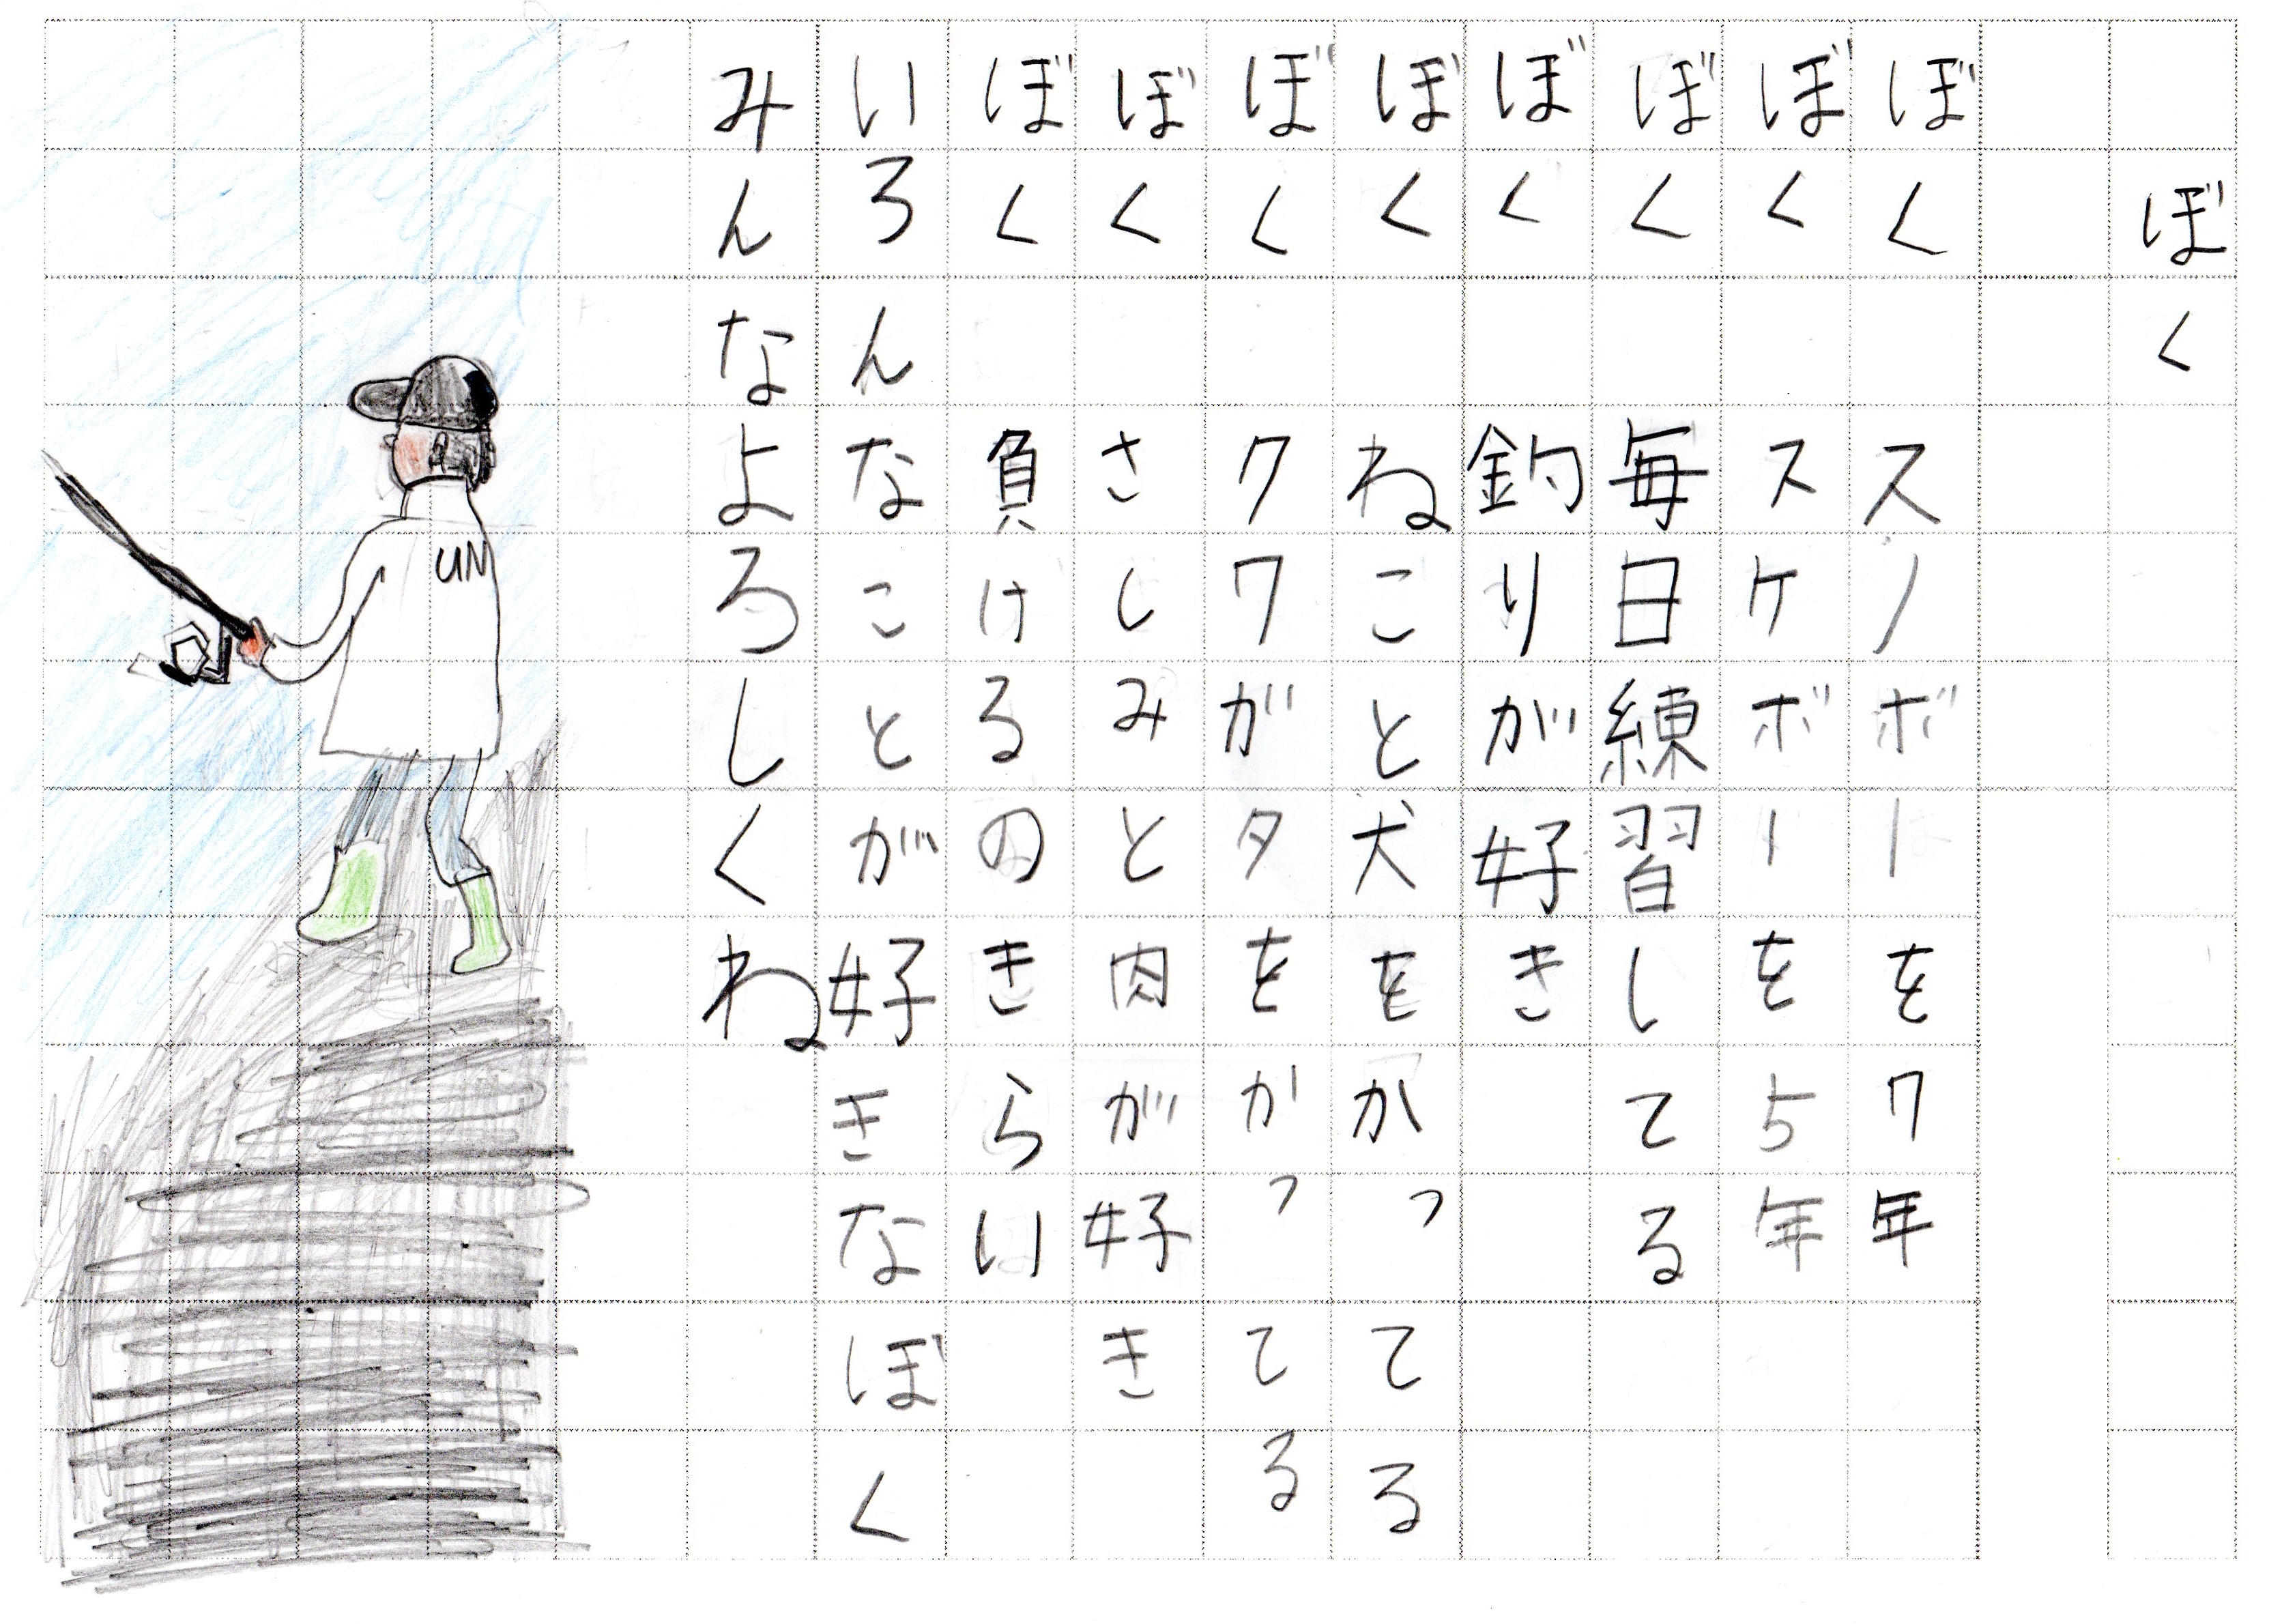 ぼく
ぼく　スノボーを7年
ぼく　スケボーを5年
ぼく　毎日練習してる
ぼく　釣りが好き
ぼく　ねこと犬をかってる
ぼく　クワガタをかってる
ぼく　さしみと肉が好き
ぼく　負けるのきらい
いろんなことが好きなぼく
みんなよろしくね
UN